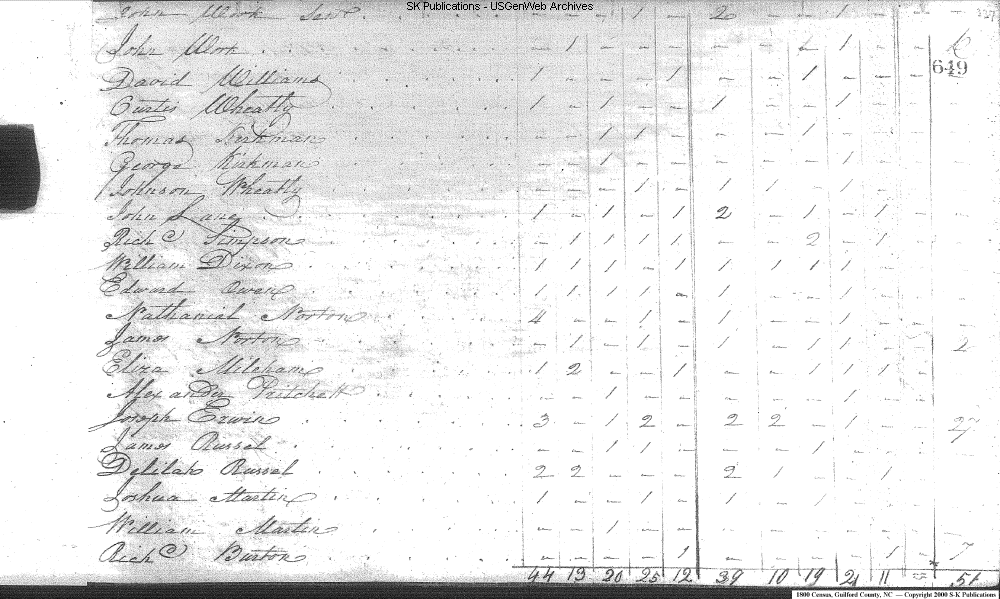 SK Publications - USGenWeb Archives
John Work Senr - - - 1 - 2 - - 1 - - -
John Work - 1 - - - - - 1 1 - -
649
David Williams 1 - - - 1 - - 1 - - -
Wheatly 1 - 1 - - 1 - - 1 - -
Thomas Kirkman - - 1 1 - - - 1 - - -
George Kirkman - - 1 - - - - - 1 - -
Johnson Wheatly - - - 1 - 1 1 - 1 - -
John Lane 1 - 1 - 1 2 - 1 - 1 - -
Richd Simpson - 1 1 1 1 - - 2 - 1 - -
William Dixon 1 1 1 - 1 1 1 1 1 - - -
Edward Owen 1 1 1 1 - 1 - 1 1 - -
Nathaniel Norton 4 - - 1 - 1 - - 1 - - -
James Norton - 1 - 1 - 1 - 1 1 - - 2
Eliza Mileham 1 2 - - 1 - - 1 1 1 -
Alexander Pritchett - - 1 - - - - - 1 - -
Joseph Erwin 3 - 1 2 - 2 2 - 1 - - 27
James Russel - - 1 1 - - - 1 - - -
Delilah Russel 2 2 - - - 2 1 - - 1 -
Joshua Martin 1 - - 1 - 1 - - 1 - -
William Martin - - 1 - - - - - - - -
Richd Burton - - - - 1 - - - - 1 - 7
44 13 20 25 12 39 10 19 21 11
1800 Census, Guilford County, NC — Copyright 2000 S-K Publications